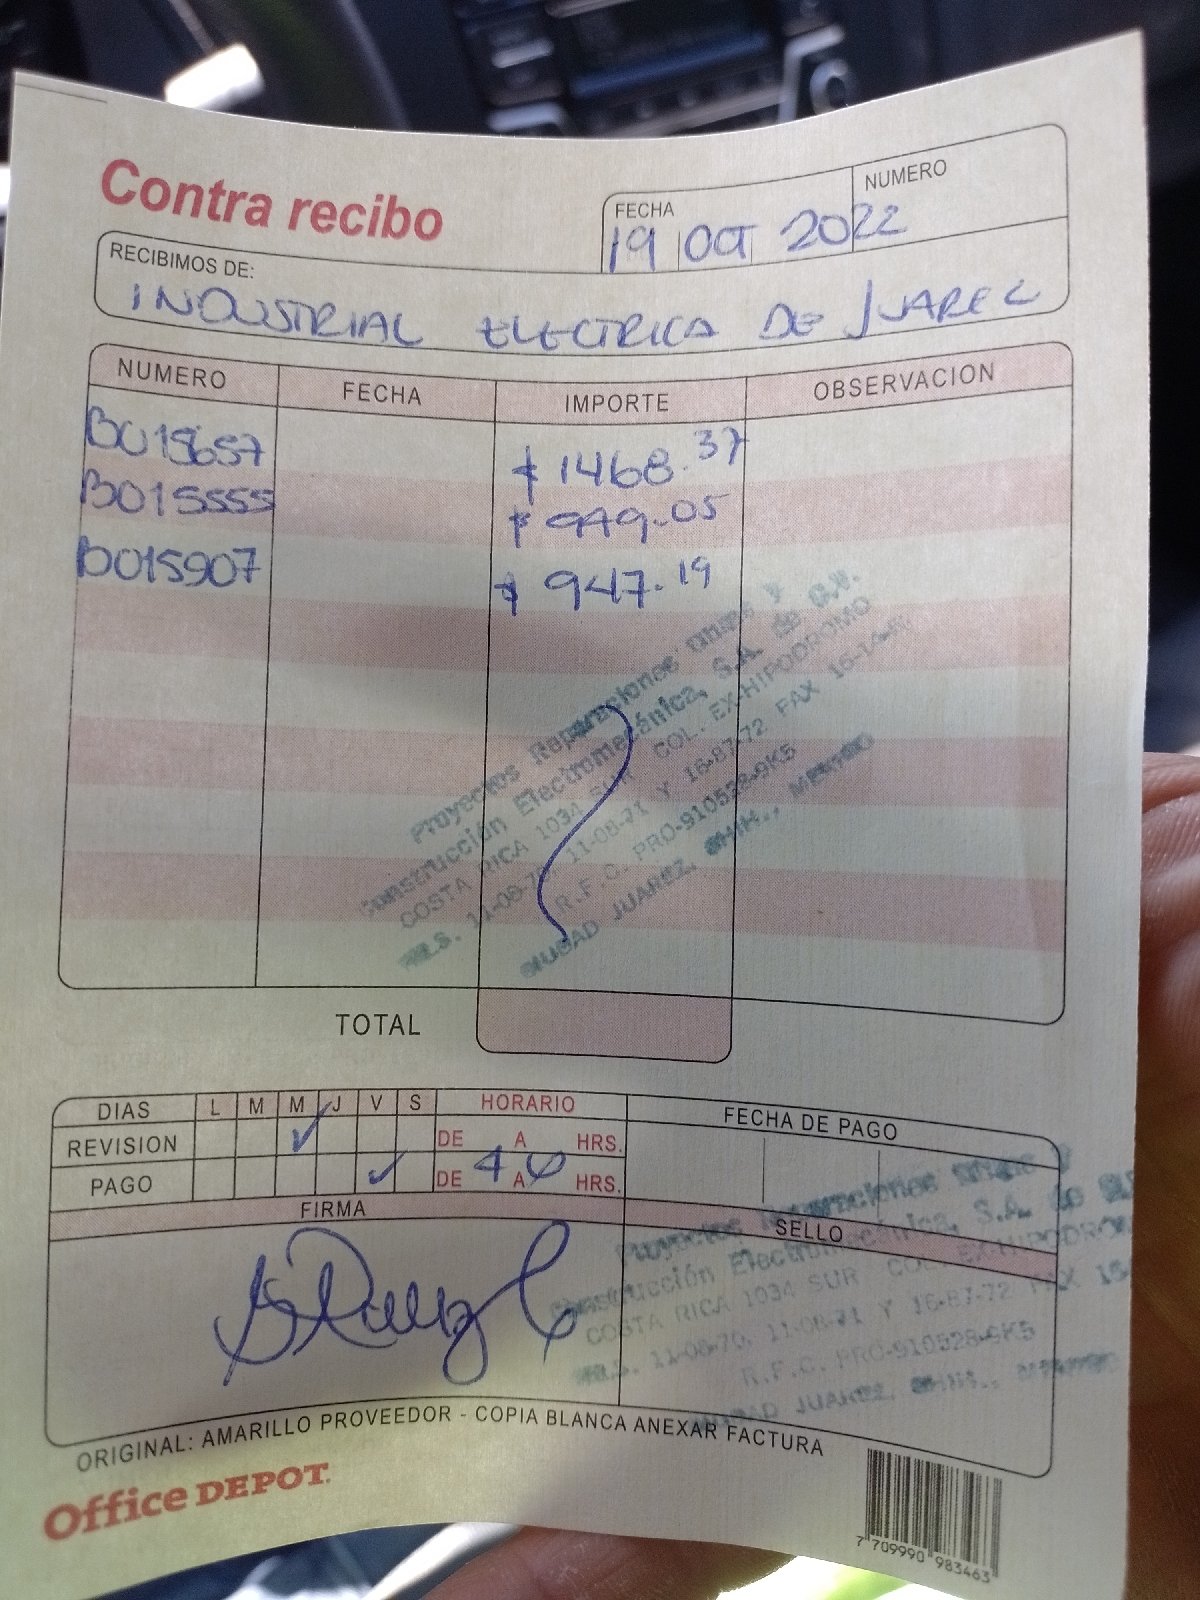 Contra recibo
FECHA
NUMERO
19 OCT 2022
RECIBIMOS DE:
INDUSTRIAL ELECTRICA DE JUAREZ
NUMERO FECHA IMPORTE OBSERVACION
BO15657 $ 1468.37
BO15555 $ 949.05
BO15907 $ 947.19
Proyectos Reparaciones y
Construcción Electromecánica, S.A. de C.V.
COSTA RICA 1034 SUR COL. EX-HIPODROMO
TELS. 11-08-70, 11-08-71 Y 16-87-72 FAX
R.F.C. PRO-910528-9K5
CIUDAD JUAREZ, CHIH., MEXICO
TOTAL
DIAS L M M J V S HORARIO FECHA DE PAGO
REVISION DE A HRS.
PAGO DE 4 A 6 HRS.
FIRMA SELLO
Proyectos Reparaciones y
Construcción Electromecánica, S.A. de
COSTA RICA 1034 SUR COL. EX-HIPODROMO
TELS. 11-08-70, 11-08-71 Y 16-87-72 FAX
R.F.C. PRO-910528-9K5
CIUDAD JUAREZ, CHIH., MEXICO
ORIGINAL: AMARILLO PROVEEDOR - COPIA BLANCA ANEXAR FACTURA
Office DEPOT.
7 709990 983463